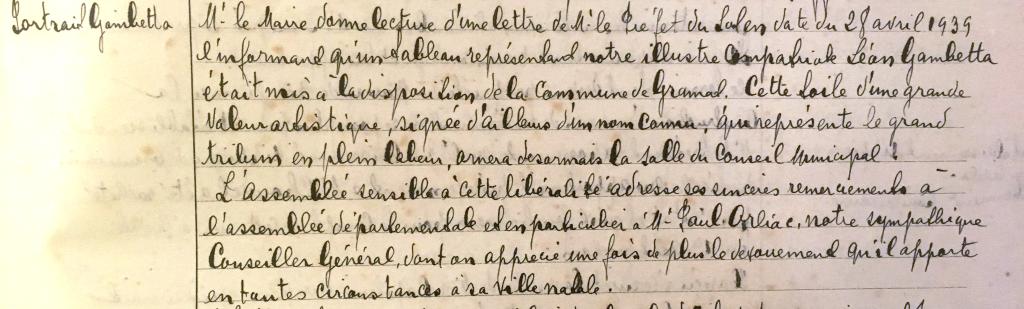 Portrait Gambetta
Mr le Maire donne lecture d'une lettre de Mr le Préfet du Lot en date du 28 avril 1939
l'informant qu'un tableau représentant notre illustre Compatriote Léon Gambetta
était mis à la disposition de la Commune de Gramat. Cette toile d'une grande
valeur artistique, signée d'ailleurs d'un nom connu, qui représente le grand
tribun en plein labeur, ornera désormais la salle du Conseil Municipal.
L'Assemblée sensible à cette libéralité adresse ses sincères remerciements à
l'assemblée départementale et en particulier à Mr Paul Orliac, notre sympathique
Conseiller Général, dont on apprécie une fois de plus le dévouement qu'il apporte
en toutes circonstances à sa ville natale.